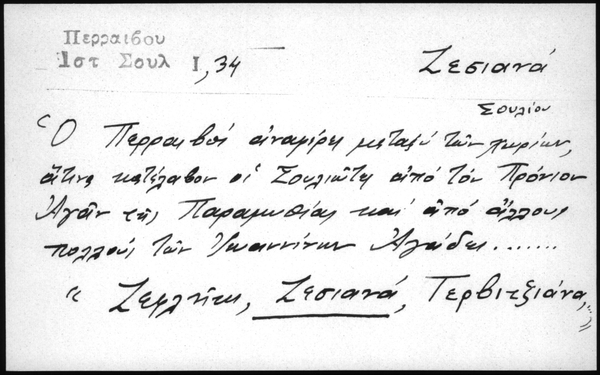 Περραιβου
Ιστ Σουλ Ι, 34
Ζεσιανά
Σουλίου
"Ὁ Περραιβός ἀναφέρει μεταξύ τῶν χωρίων,
ἅτινα κατέλαβον οἱ Σουλιῶται ἀπό τόν Πρόνιον
Ἀγᾶν τῆς Παραμυθίας καί ἀπό ἄλλους
πολλούς τῶν Ἰωαννίνων Ἀγάδες.......
" Ζερλπτι, Ζεσιανά, Τερβιτζιάνα,"